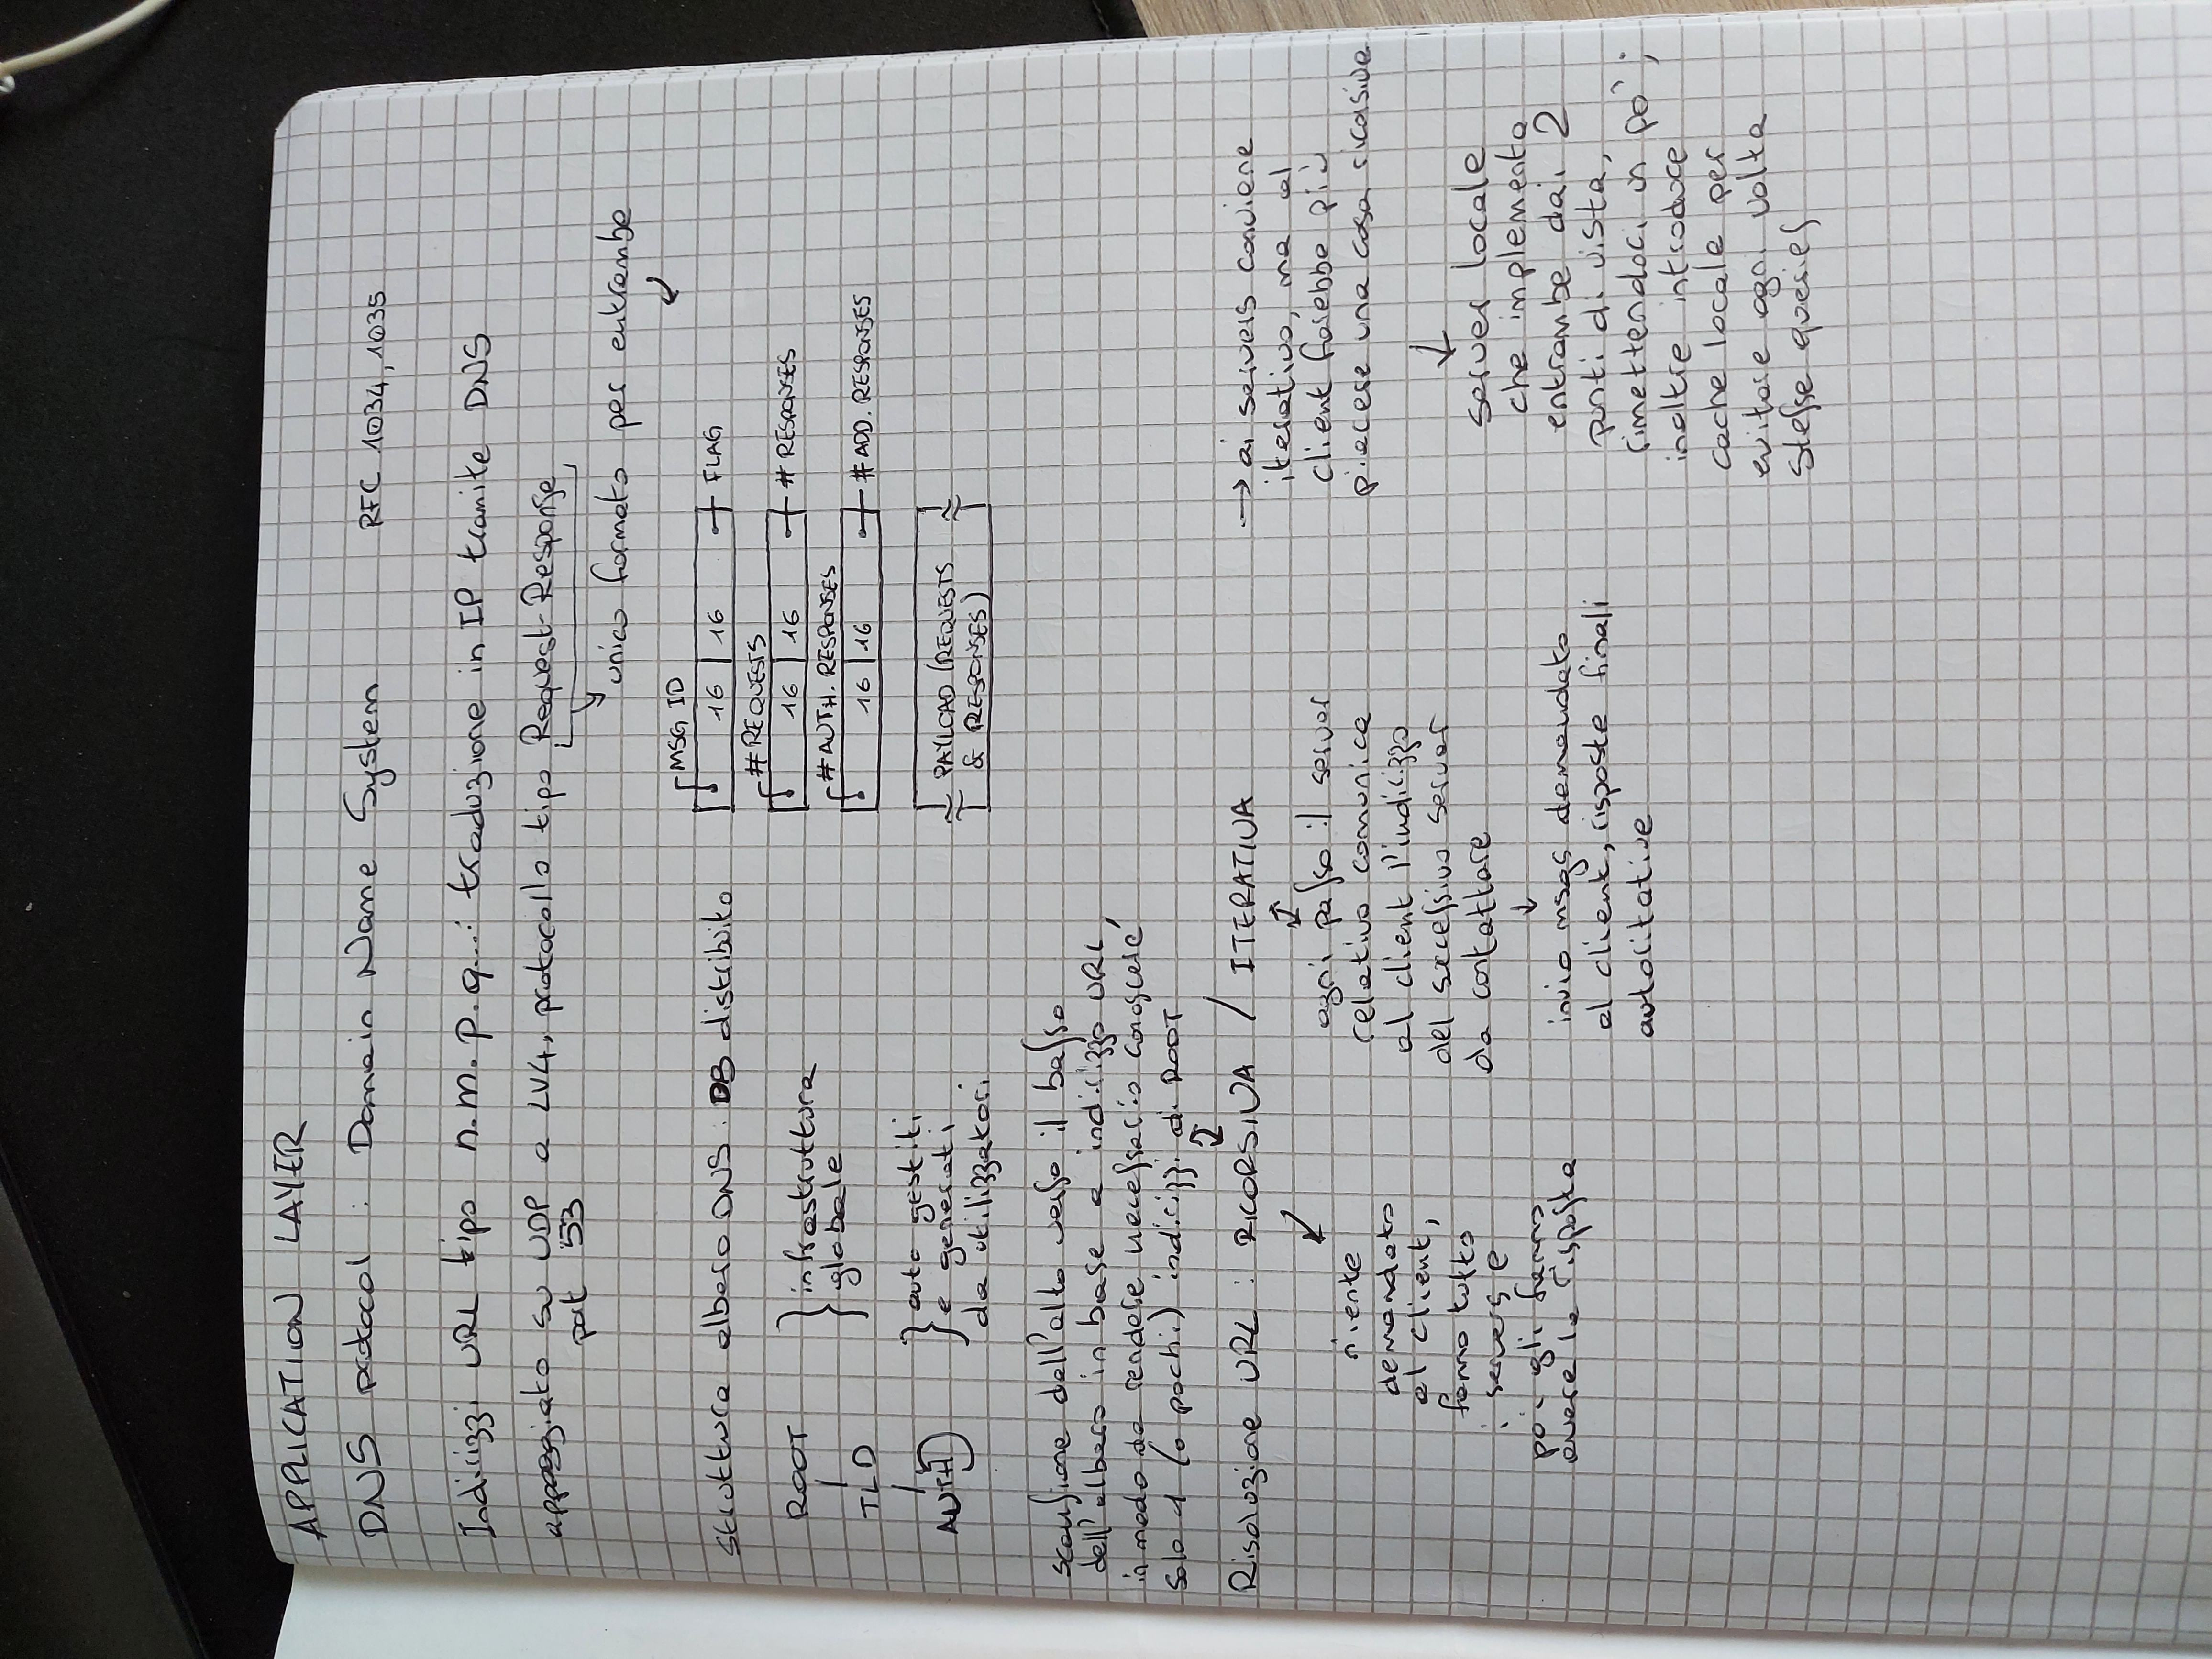 APPLICATION LAYER
DNS protocol : Domain Name System RFC 1034, 1035
Indirizzi URL tipo n.m.p.q...: traduzione in IP tramite DNS
appoggiato su UDP a LV4, protocollo tipo Request-Response
port 53
unico formato per entrambe
MSG ID
16 | 16 FLAG
# REQUESTS
16 | 16 # RESPONSES
# AUTH. RESPONSES
16 | 16 # ADD. RESPONSES
PAYLOAD (REQUESTS
& RESPONSES)
struttura albero DNS : DB distribuito
ROOT
TLD
AUTH
infrastruttura
globale
auto gestiti
e generati
da utilizzatori
scansione dall'alto verso il basso
dell'albero in base a indirizzo URL,
in modo da rendere necessario conoscere
solo 1 (o pochi) indirizzi di ROOT
Risoluzione URL : RICORSIVA / ITERATIVA
niente
demandato
al client,
fanno tutto
i servers e
poi gli fanno
avere la risposta
ogni passo il server
relativo comunica
al client l'indirizzo
del successivo server
da contattare
invio msgs demandato
al client, risposte finali
autoritative
→ ai servers conviene
iterativo, ma al
client farebbe più
piacere una cosa ricorsiva
server locale
che implementa
entrambe dai 2
punti di vista,
rimettendoci un po';
inoltre introduce
cache locale per
evitare ogni volta
stesse queries